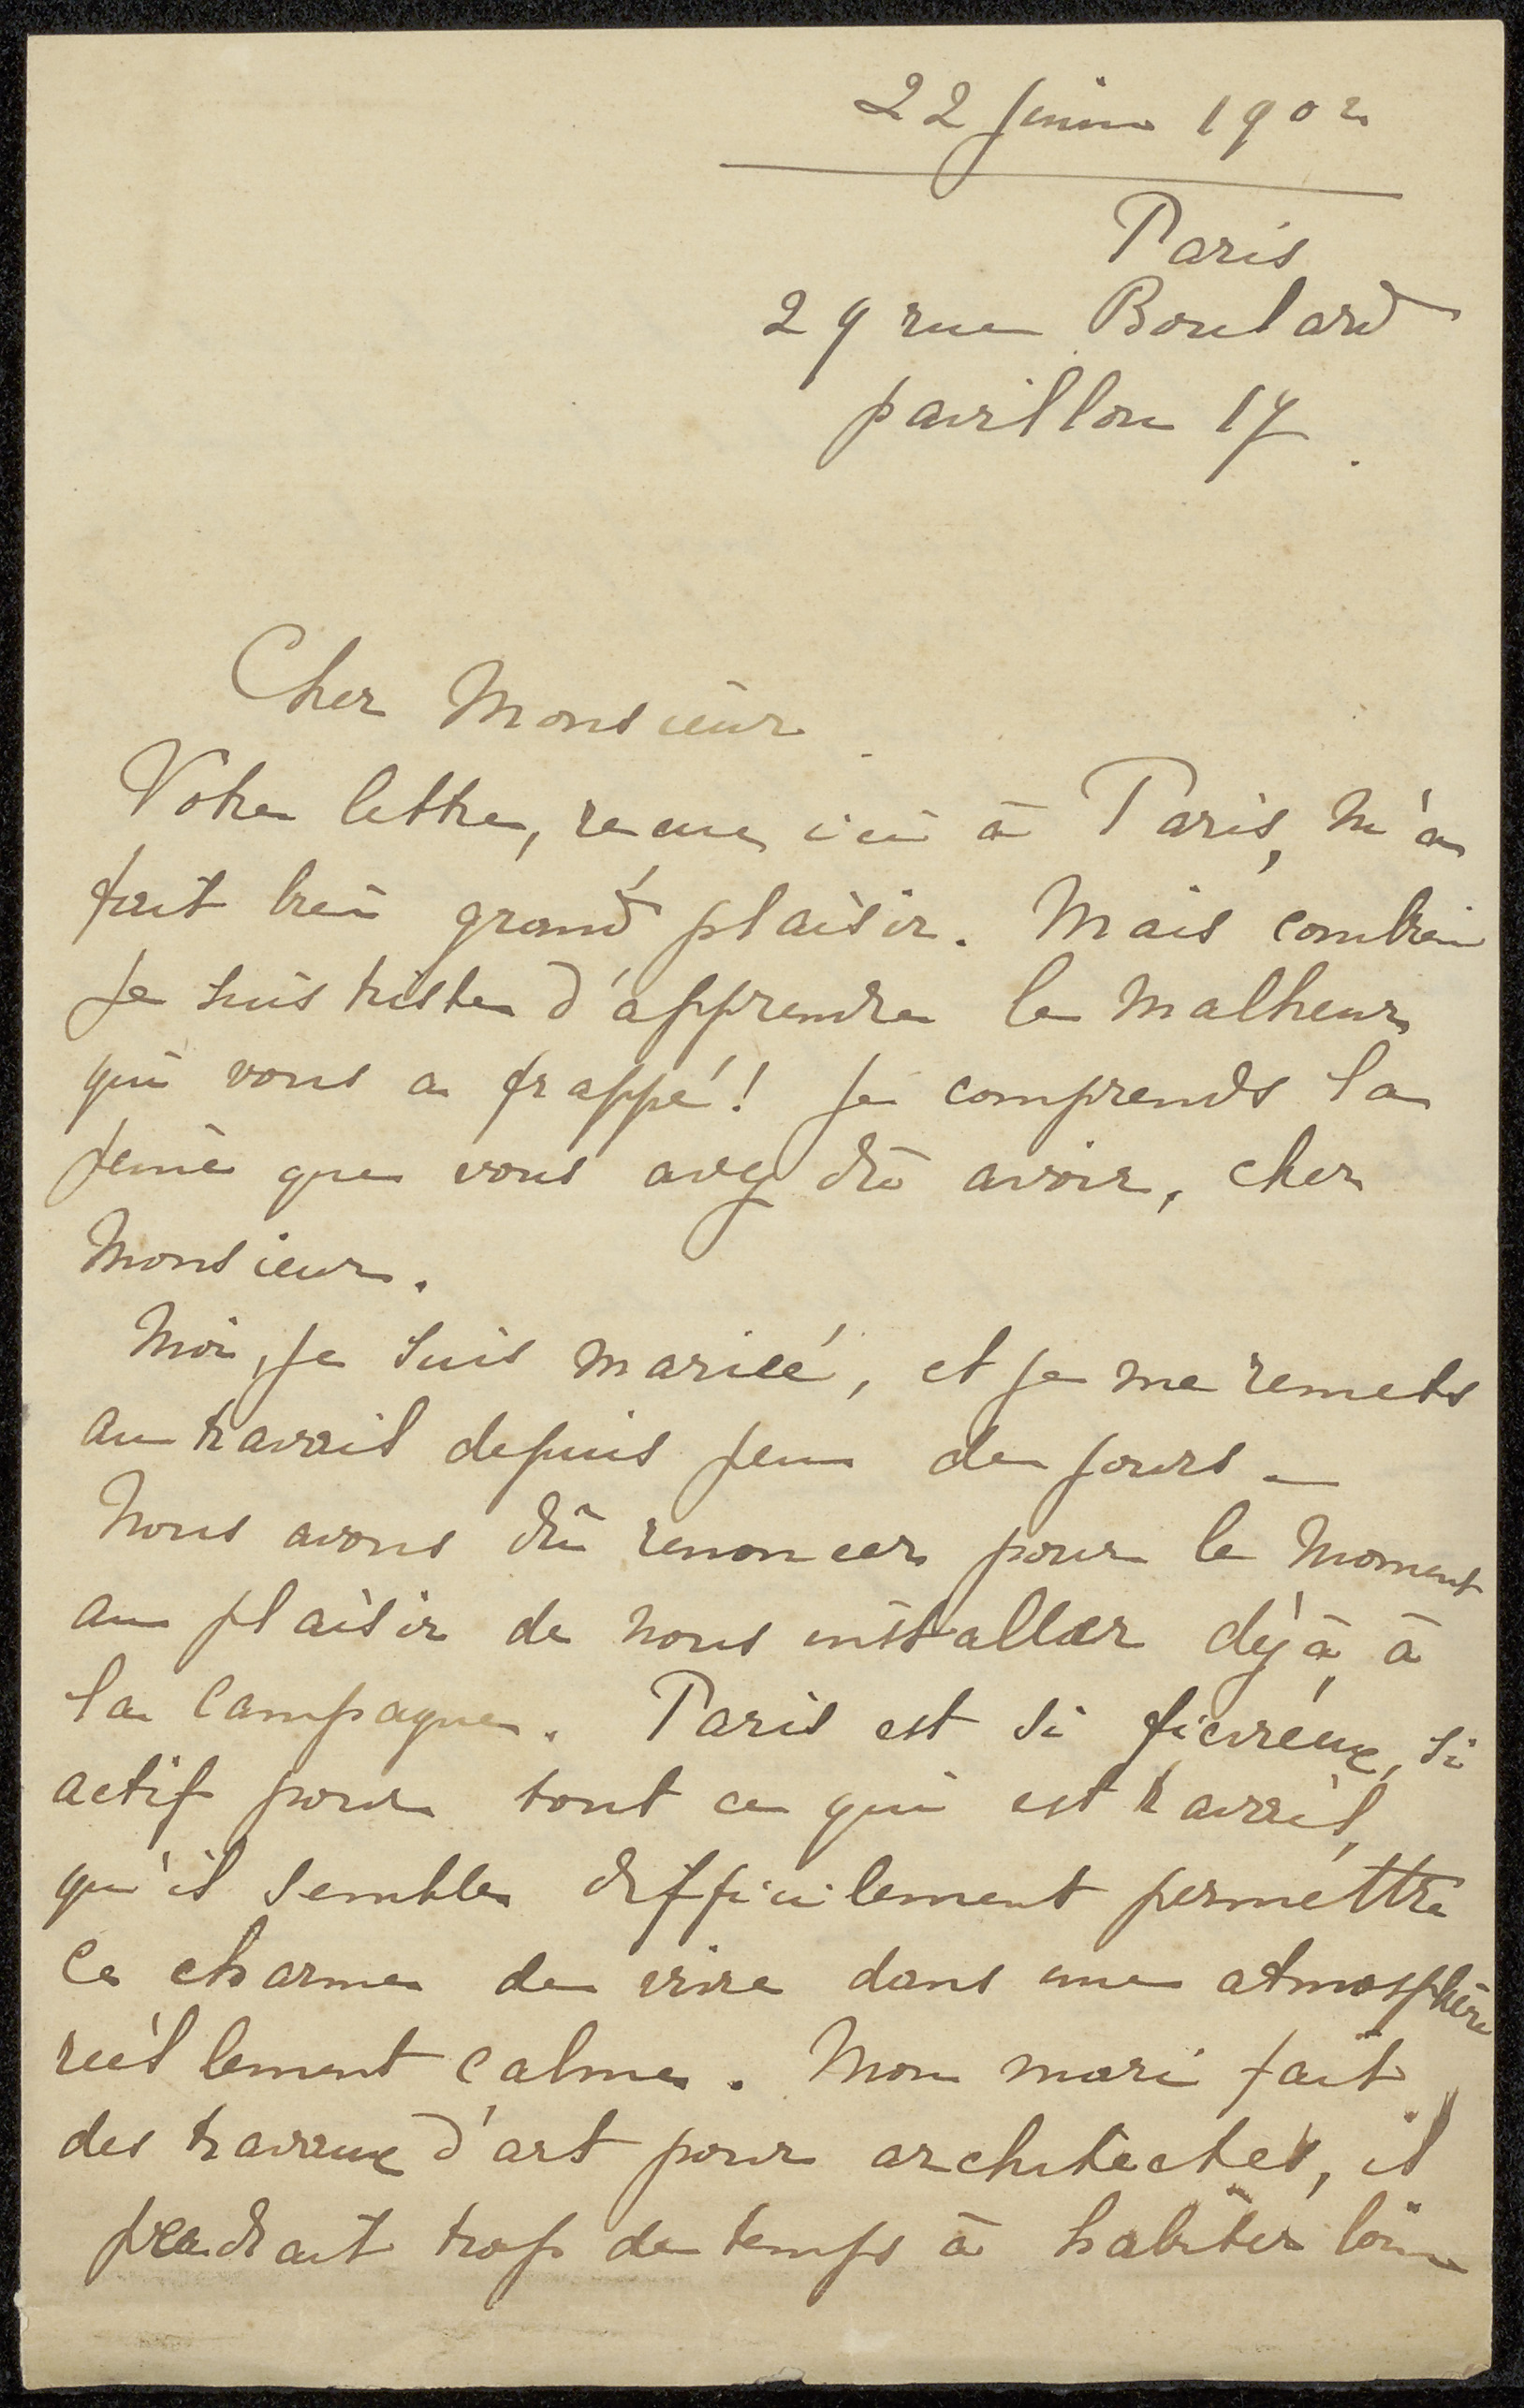 22 Juin 1902
Paris
29 rue Boulard
pavillon 17.
Cher Monsieur.
Votre lettre, recue ici à Paris, m'a
fait bien grand plaisir. Mais combien
je suis triste d'apprendre le malheur
qui vous a frappé! Je comprends la
peine que vous avez dû avoir, cher
Monsieur.
Moi, je suis mariée, et je me remets
au travail depuis peu de jours _
Nous avons dû renoncer pour le moment
au plaisir de nous installer déjà à
la campagne. Paris est si fiévreux, si
actif pour tout ce qui est travail,
qu'il semble difficilement permettre
ce charme de vivre dans une atmosphère
réellement calme. Mon mari fait
des travaux d'art pour architectes, il
perdrait trop de temps à habiter loin